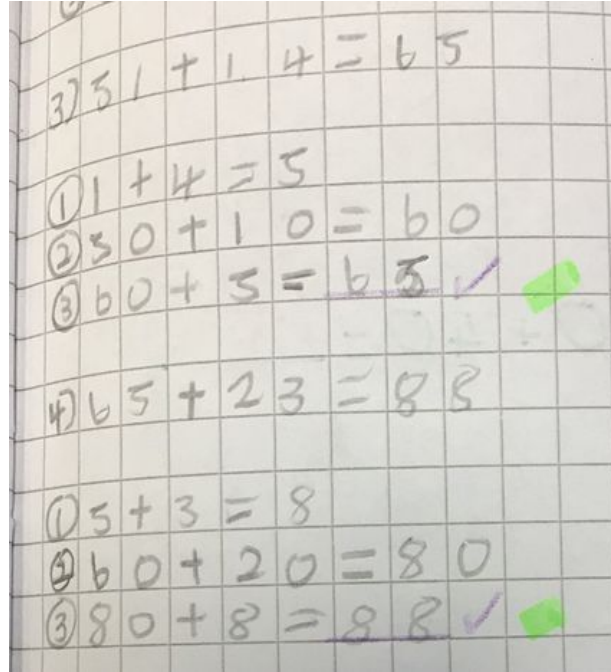 3) 51 + 14 = 65
① 1 + 4 = 5
② 50 + 10 = 60
③ 60 + 5 = 65 ✓
4) 65 + 23 = 88
① 5 + 3 = 8
② 60 + 20 = 80
③ 80 + 8 = 88 ✓